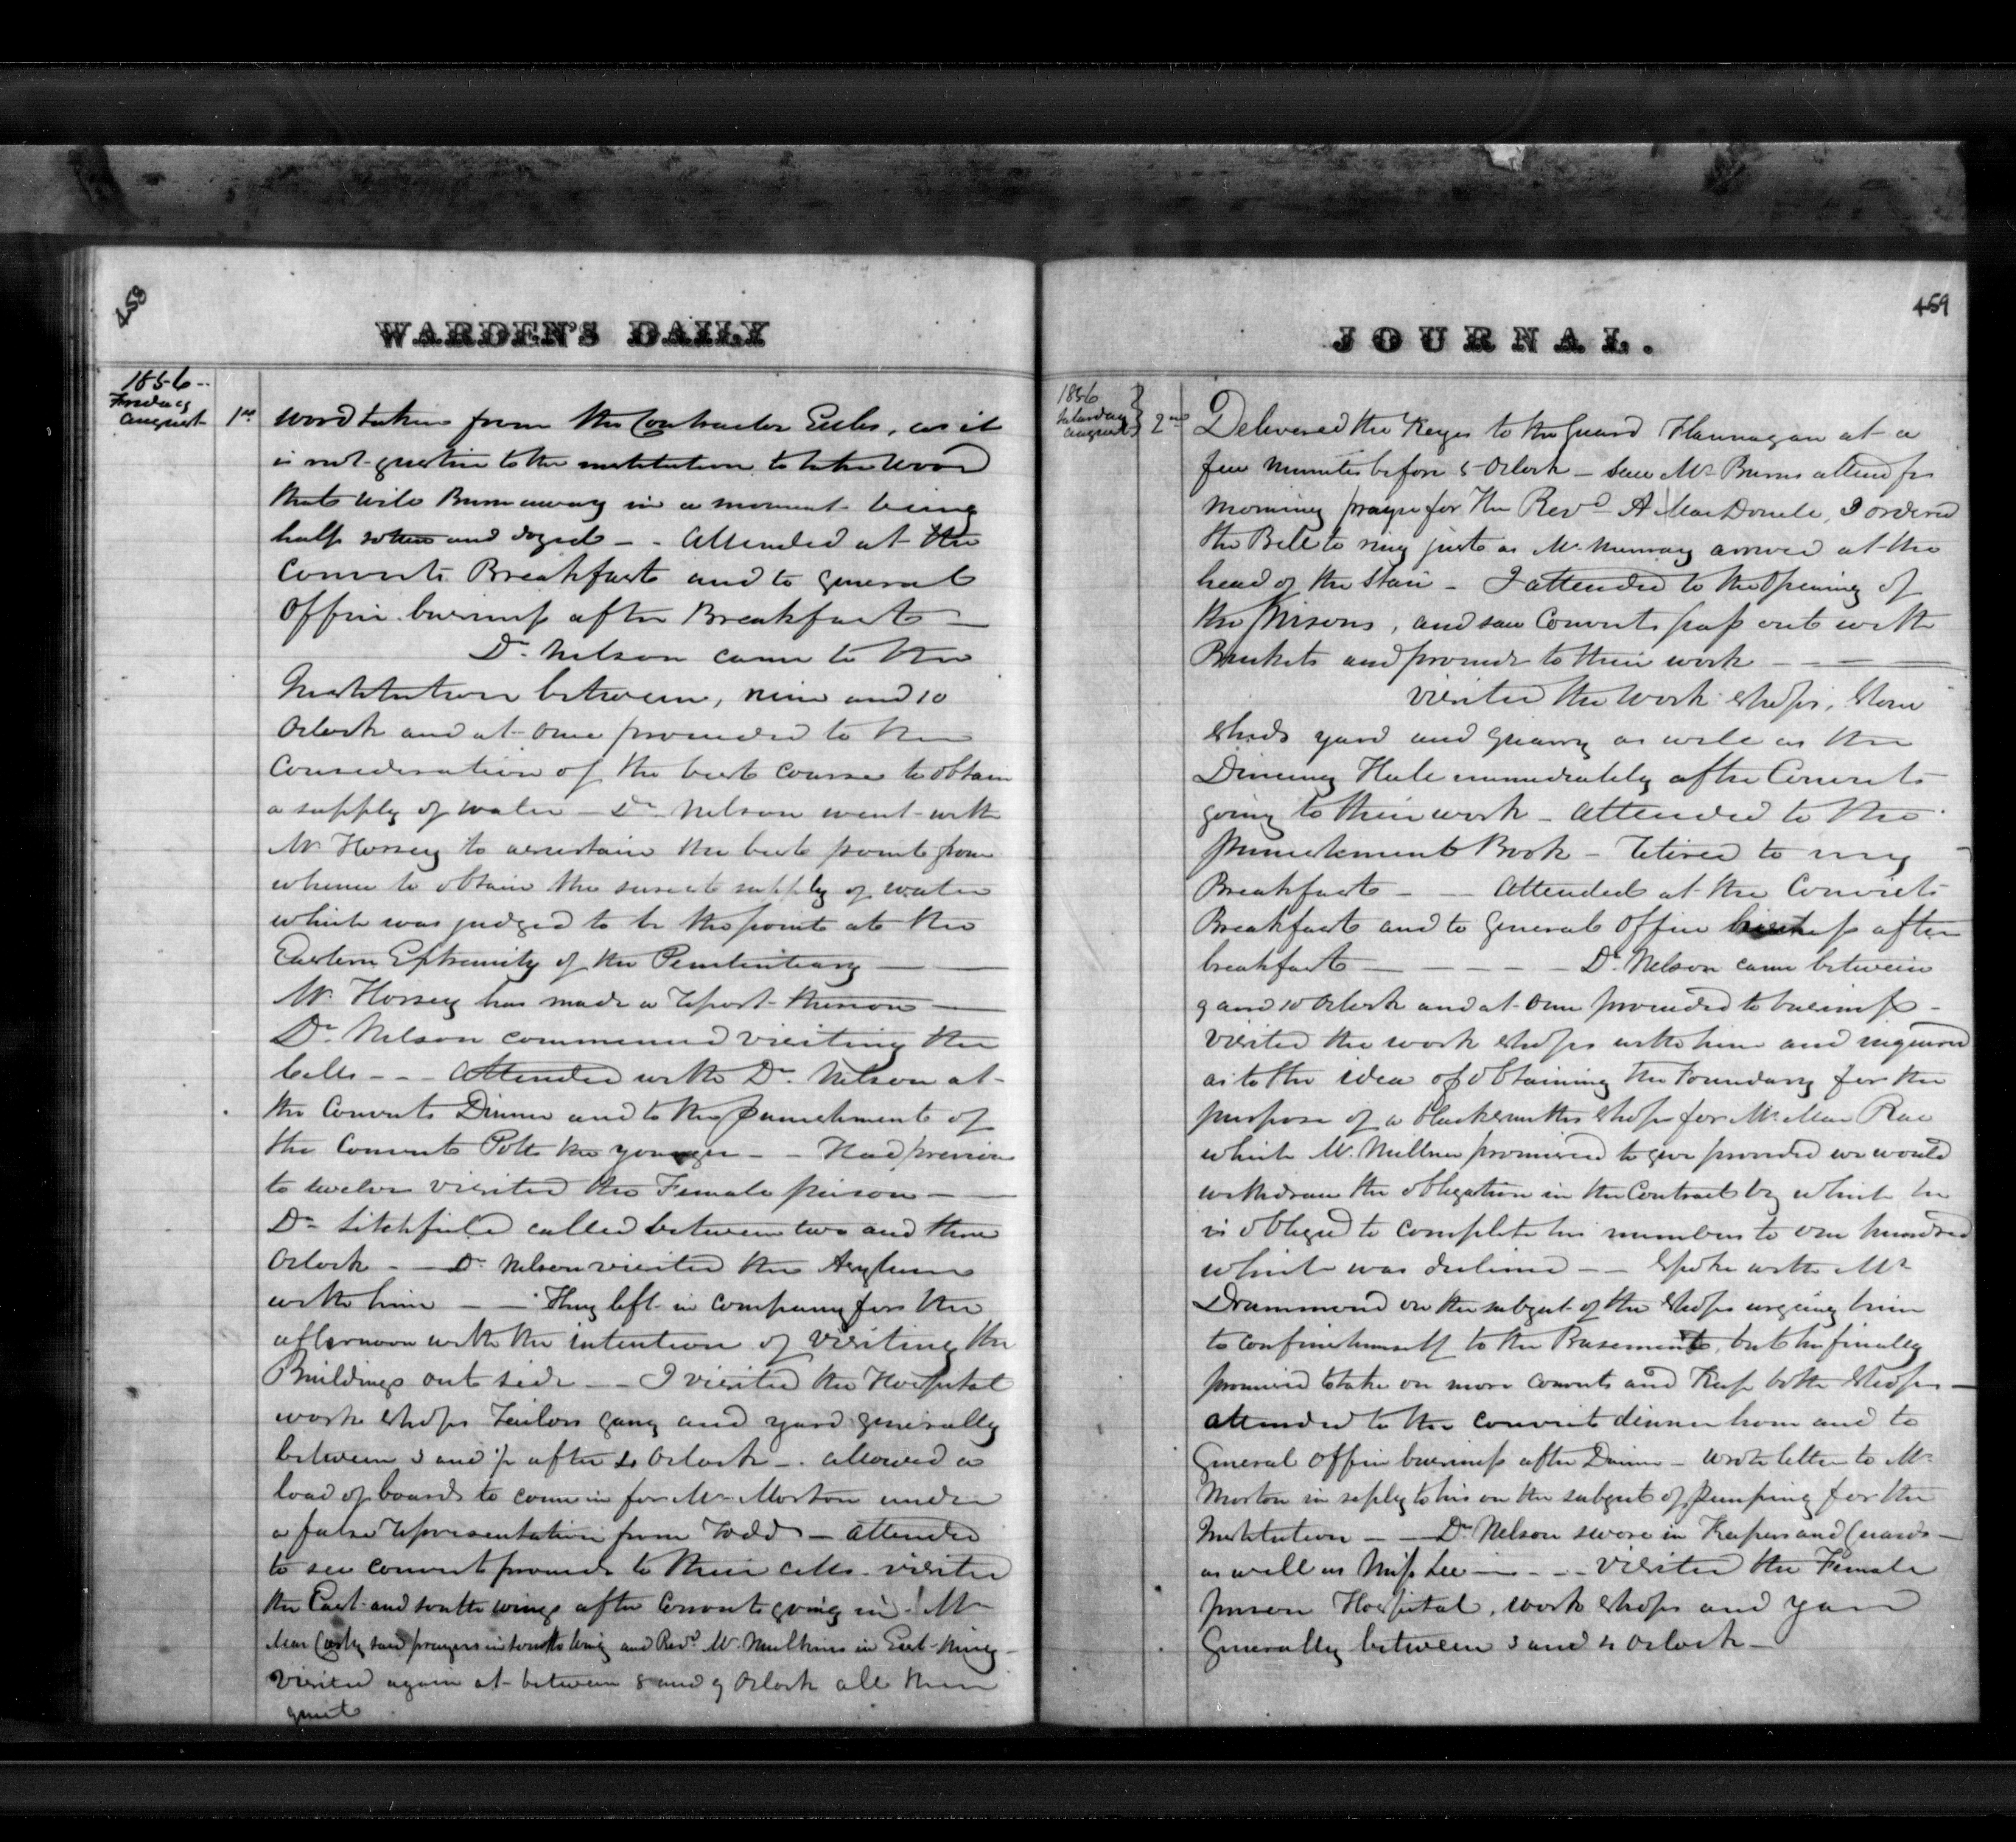 458
WARDEN'S DAILY
1856
Friday
August
1st
wood taken from the Contractor Eccles, as it
is not justice to the institution to take wood
that will Burn away in a moment being
half rotten and dozed - - Attended at the
Convicts Breakfast and to general
Office business after Breakfast —
Dr. Nelson came to the
Institution between, nine and 10
Oclock and at once proceeded to the
Consideration of the best course to obtain
a supply of water — Dr. Nelson went with
Mr. Horsey to ascertain the best point from
whence to obtain the surest supply of water
which was judged to be the point at the
Eastern Extremity of the Penitentiary —
Mr. Horsey has made a report thereon —
Dr. Nelson commenced visiting the
Cells - - - Attended with Dr. Nelson at
the Convicts Dinner and to the punishment of
the Convict Potts the younger - - Had previous
to twelve visited the Female prison —
Dr. Litchfield called between two and three
Oclock - - Dr. Nelson visited the Asylum
with him - - They left in company for the
afternoon with the intention of visiting the
Buildings out side - - I visited the Hospital
work shops Tailors gang and yard generally
between 3 and ½ after 4 Oclock - . allowed a
load of boards to come in for Mr. Morton under
a false representation from Todd - attended
to see convicts proceed to their cells. visited
the East and South wings after Convicts going in. Mr
Mac Carthy said prayers in South Wing and Revd. Mr. Mulkins in East Wing -
Visited again at between 8 and 9 Oclock all then
quiet
459
JOURNAL.
1856
Saturday
August
2nd
Delivered the Keys to the guard Flannagan at a
few minutes before 5 Oclock - saw Mr. Burns attend for
morning prayer for the Revd. A MacDonell, I ordered
the Bell to ring just as Mr. Murray arrived at the
head of the Stair - I attended to the Opening of
the Prisons, and saw Convicts pass out with
Buckets and proceed to their work - - -
visited the Work Shops, Stone
Sheds yard and Quarry as well as the
Dining Hall immediately after Convicts
going to their work - Attended to the
punishment Book - retired to my
Breakfast - - Attended at the Convicts
Breakfast and to General Office business after
breakfast - - - - - Dr. Nelson came between
9 and 10 Oclock and at once proceeded to business -
Visited the work shops with him and inquired
as to the idea of obtaining the Foundary for the
purpose of a blacksmiths shop for Mr. Mac Rae
which Mr. Millner promised to give provided we would
withdraw the obligation in the Contract by which he
is obliged to complete his numbers to one hundred
which was declined - - Spoke with Mr
Drummond on the subject of the shops urging him
to confine himself to the Basement, but he finally
promised to take on more convicts and Keep both shops —
attended to the convict dinner hour and to
General Office business after Dinner - Wrote letter to Mr
Morton in reply to his on the subject of pumping for the
Institution - - Dr. Nelson swore in Keepers and Guards —
as well as Miss Lee - - - - Visited the Female
prison Hospital, work shops and yard
Generally between 3 and 4 Oclock —